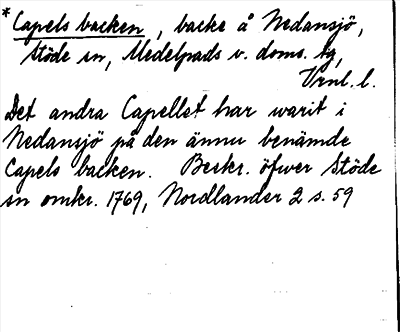 * Capels backen, backe å Nedansjö,
Stöde sn, Medelpads v. doms. tg,
Vrnl. l.
Det andra Capellet har warit i
Nedansjö på den ännu benämde
Capels backen. Beskr. öfwer Stöde
sn omkr. 1769, Nordlander 2 s. 59